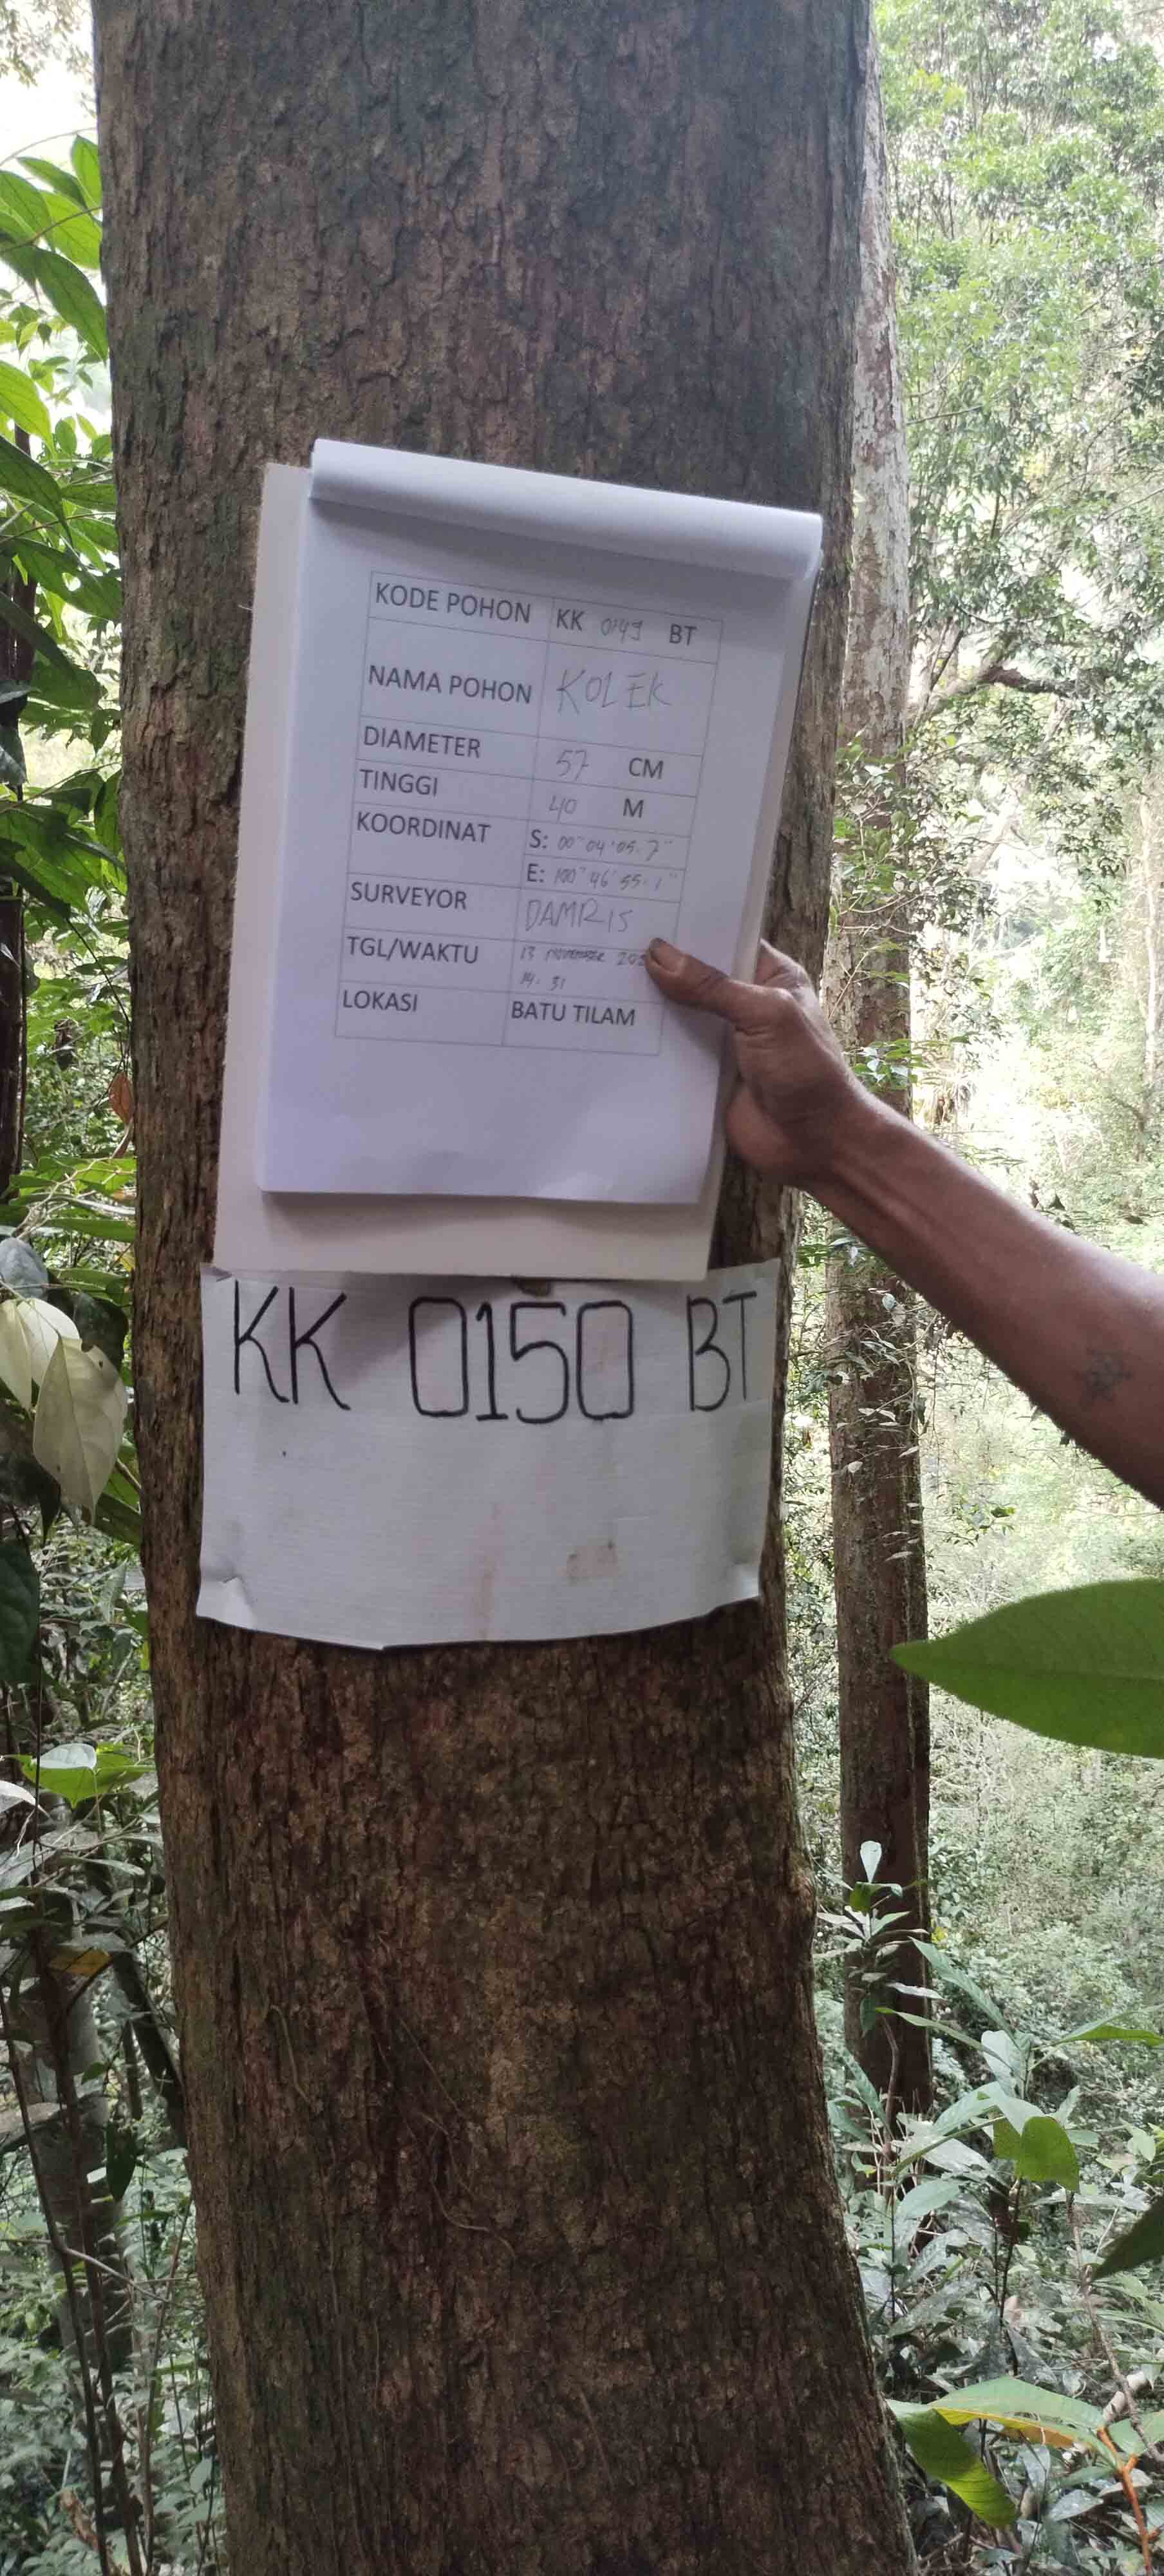 KODE POHON KK 0149 BT
NAMA POHON KOLEK
DIAMETER 57 CM
TINGGI 40 M
KOORDINAT S: 00°04'05.7"
E: 100°46'55.1"
SURVEYOR DAMRIS
TGL/WAKTU 13 NOVEMBER
14.31
LOKASI BATU TILAM
KK 0150 BT